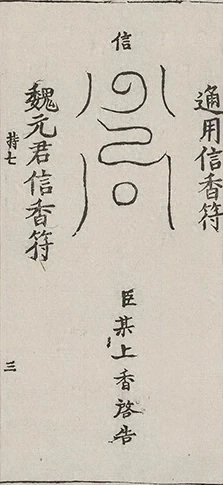 通用信香符
信
臣某上香啓告
魏元君信香符
持七
三